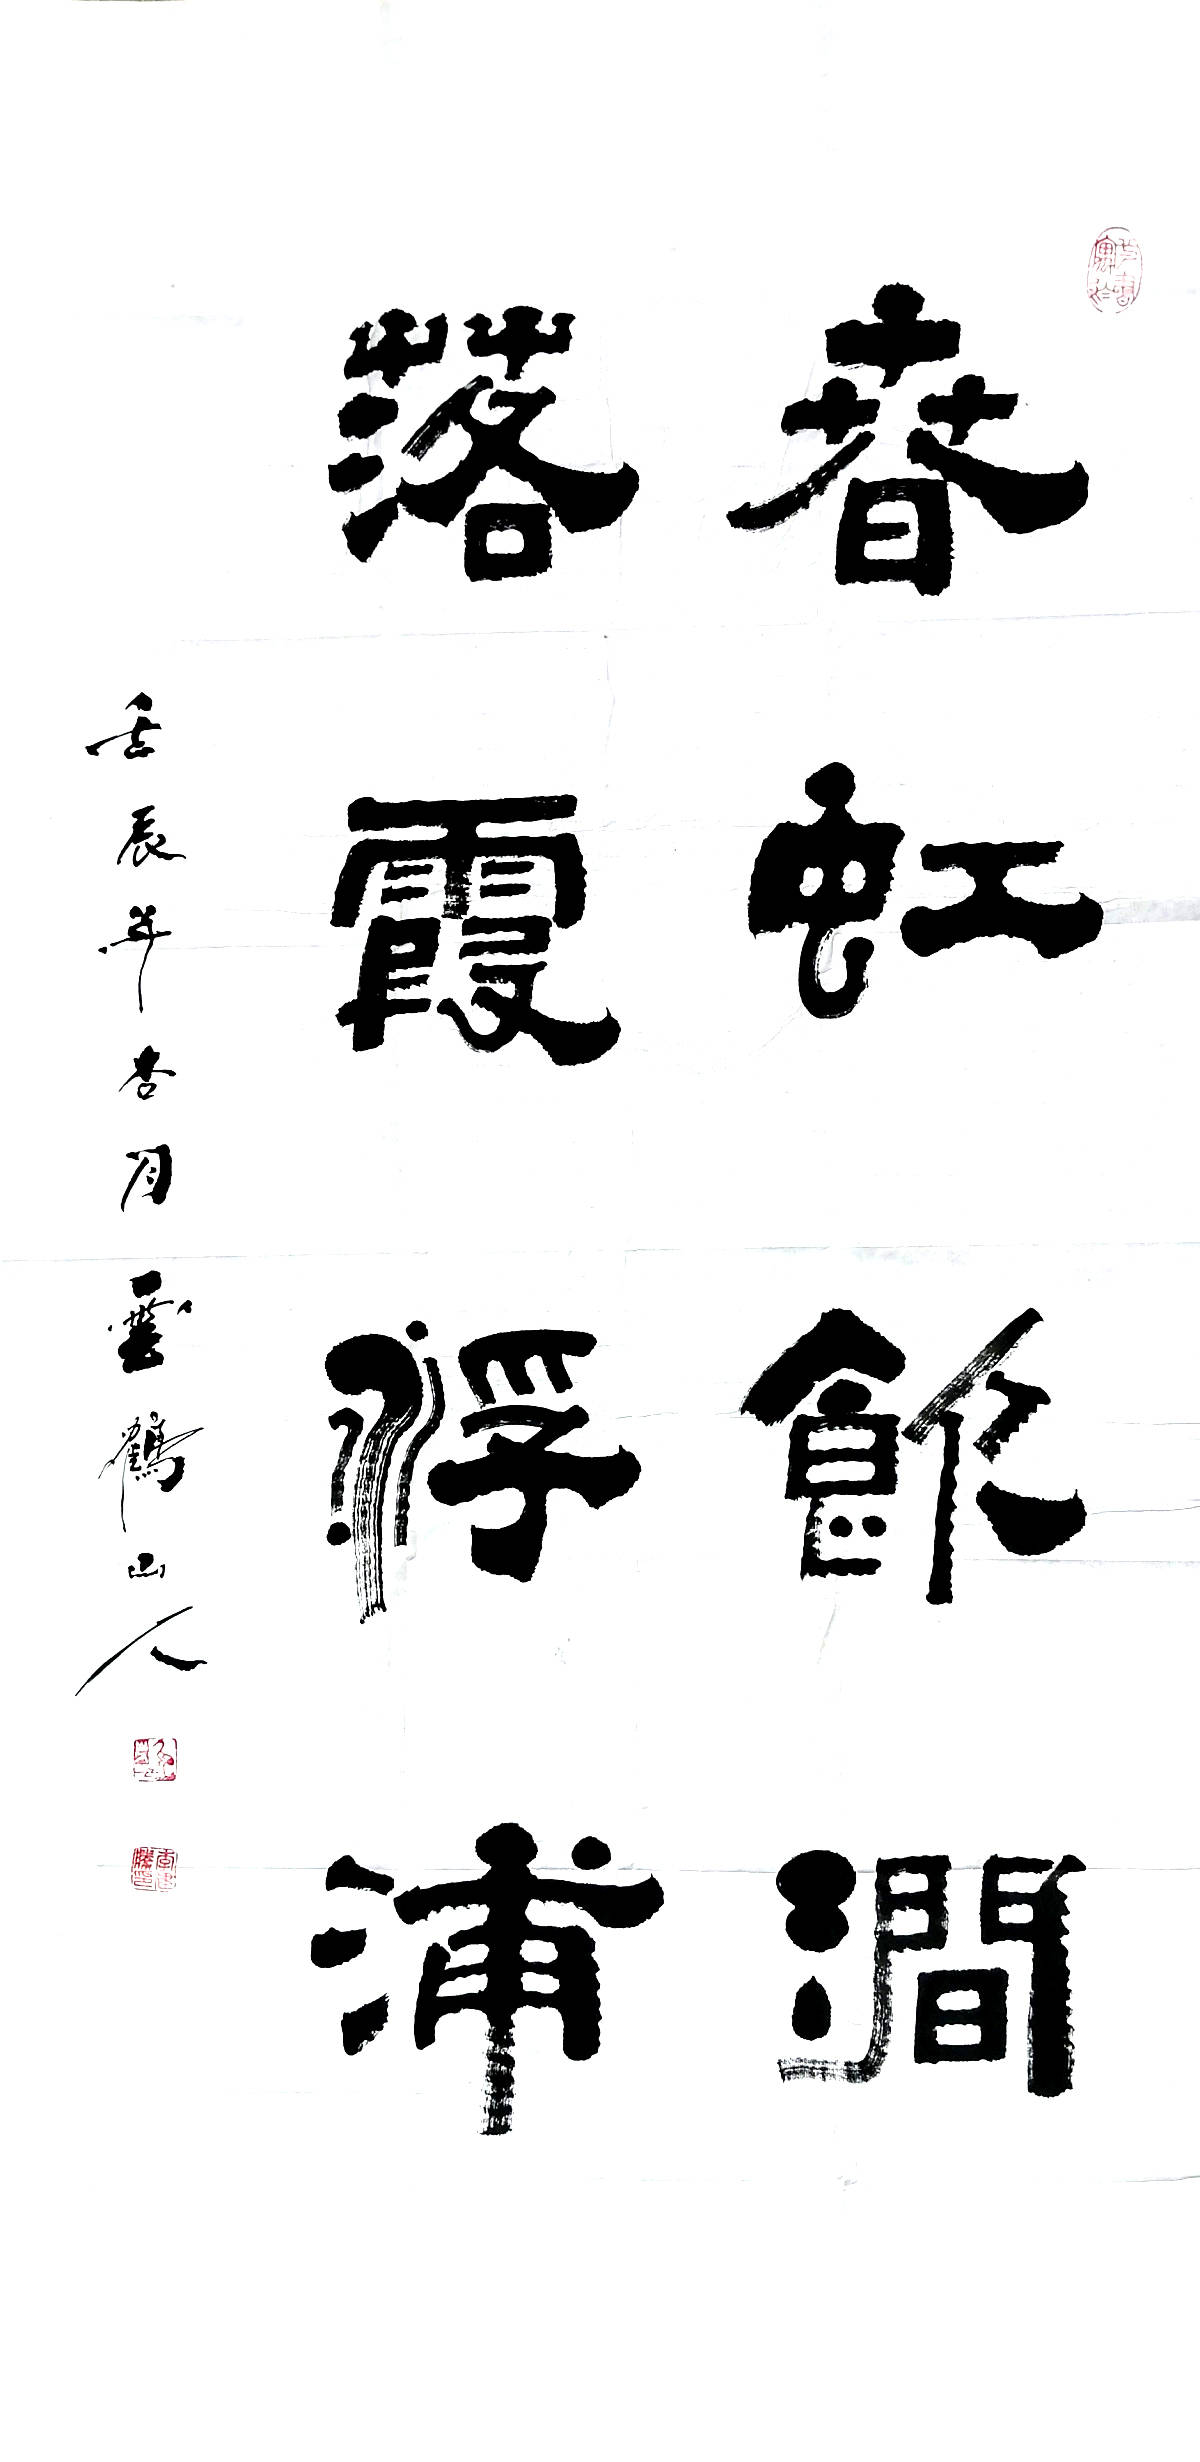 春虹飲澗
落霞浮浦
壬辰年杏月雲鶴山人